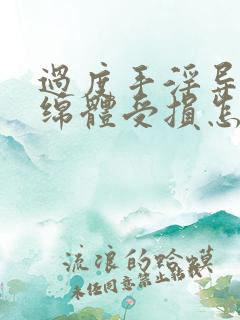 過度手淫导
绵體受損怎
流浪的蛤蟆
未任同意禁止転載